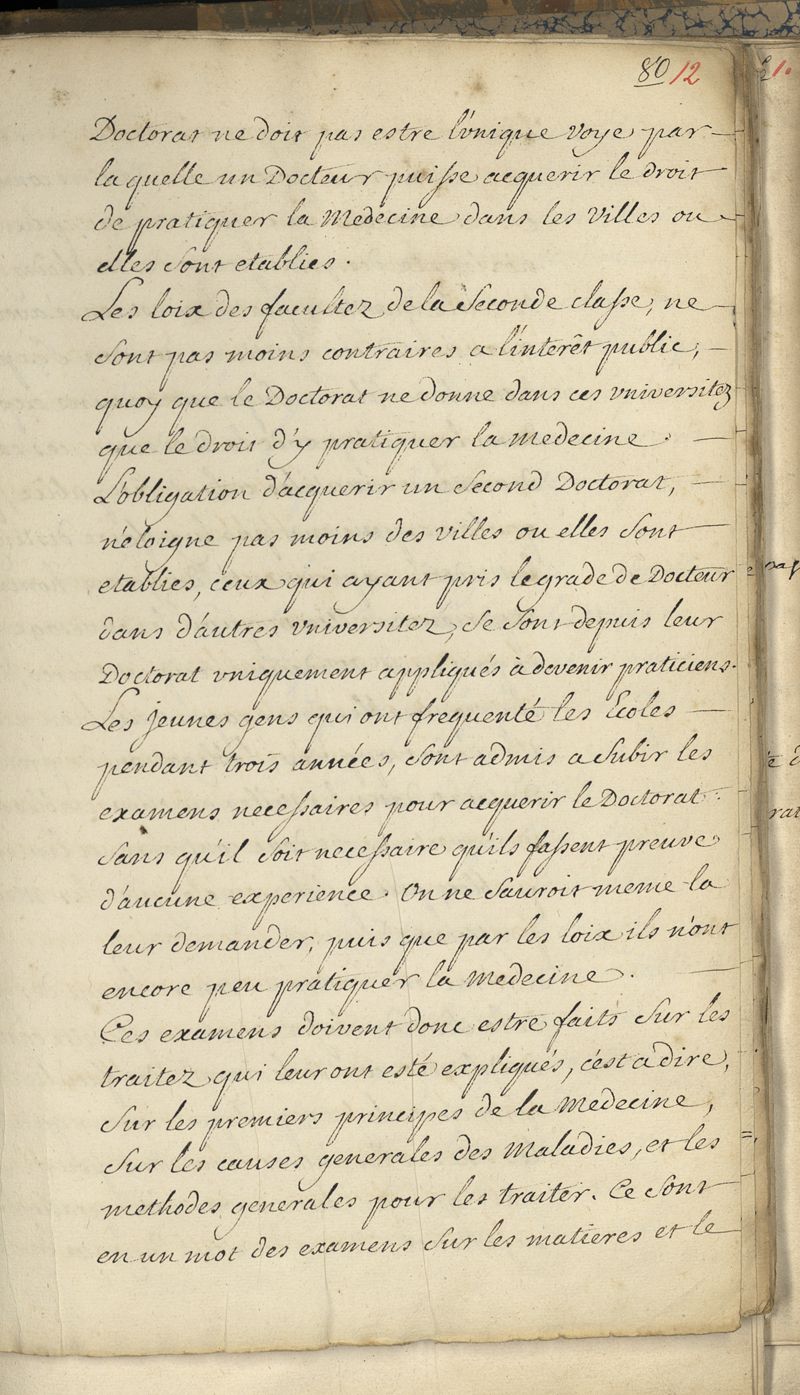 80 12
Doctorat ne doit pas estre l'vnique voye par
la quelle un Docteur puisse acquerir le droit
de pratiquer la Medecine dans les villes ou
elles sont etablies.
Les loix des facultez de la seconde classe, ne
sont pas moins contraires a l'interêt public,
quoy que le Doctorat ne donne dans ces vniversitez
que le droit d'y pratiquer la medecine.
L'obligation d'acquerir un second Doctorat,
n'eloigne pas moins des villes ou elles sont
etablies, ceux qui ayant pris le grade de Docteur
dans d'autres vniversitez, se sont depuis leur
Doctorat vniquement appliqués à devenir praticiens.
Les jeunes gens qui ont frequenté les Ecoles
pendant trois années, sont admis a subir les
examens necessaires pour acquerir le Doctorat
sans qu'il soit necessaire qu'ils fassent preuve
d'aucune experience. On ne sauroit meme la
leur demander, puis que par les loix ils n'ont
encore peu pratiquer la medecine.
Ces examens doivent donc estre faits sur les
traitez qui leur ont esté expliqués, c'est a dire,
sur les premiers principes de la medecine,
sur les causes generales des maladies, et les
methodes generales pour les traiter. Ce sont
en un mot des examens sur les matieres et le